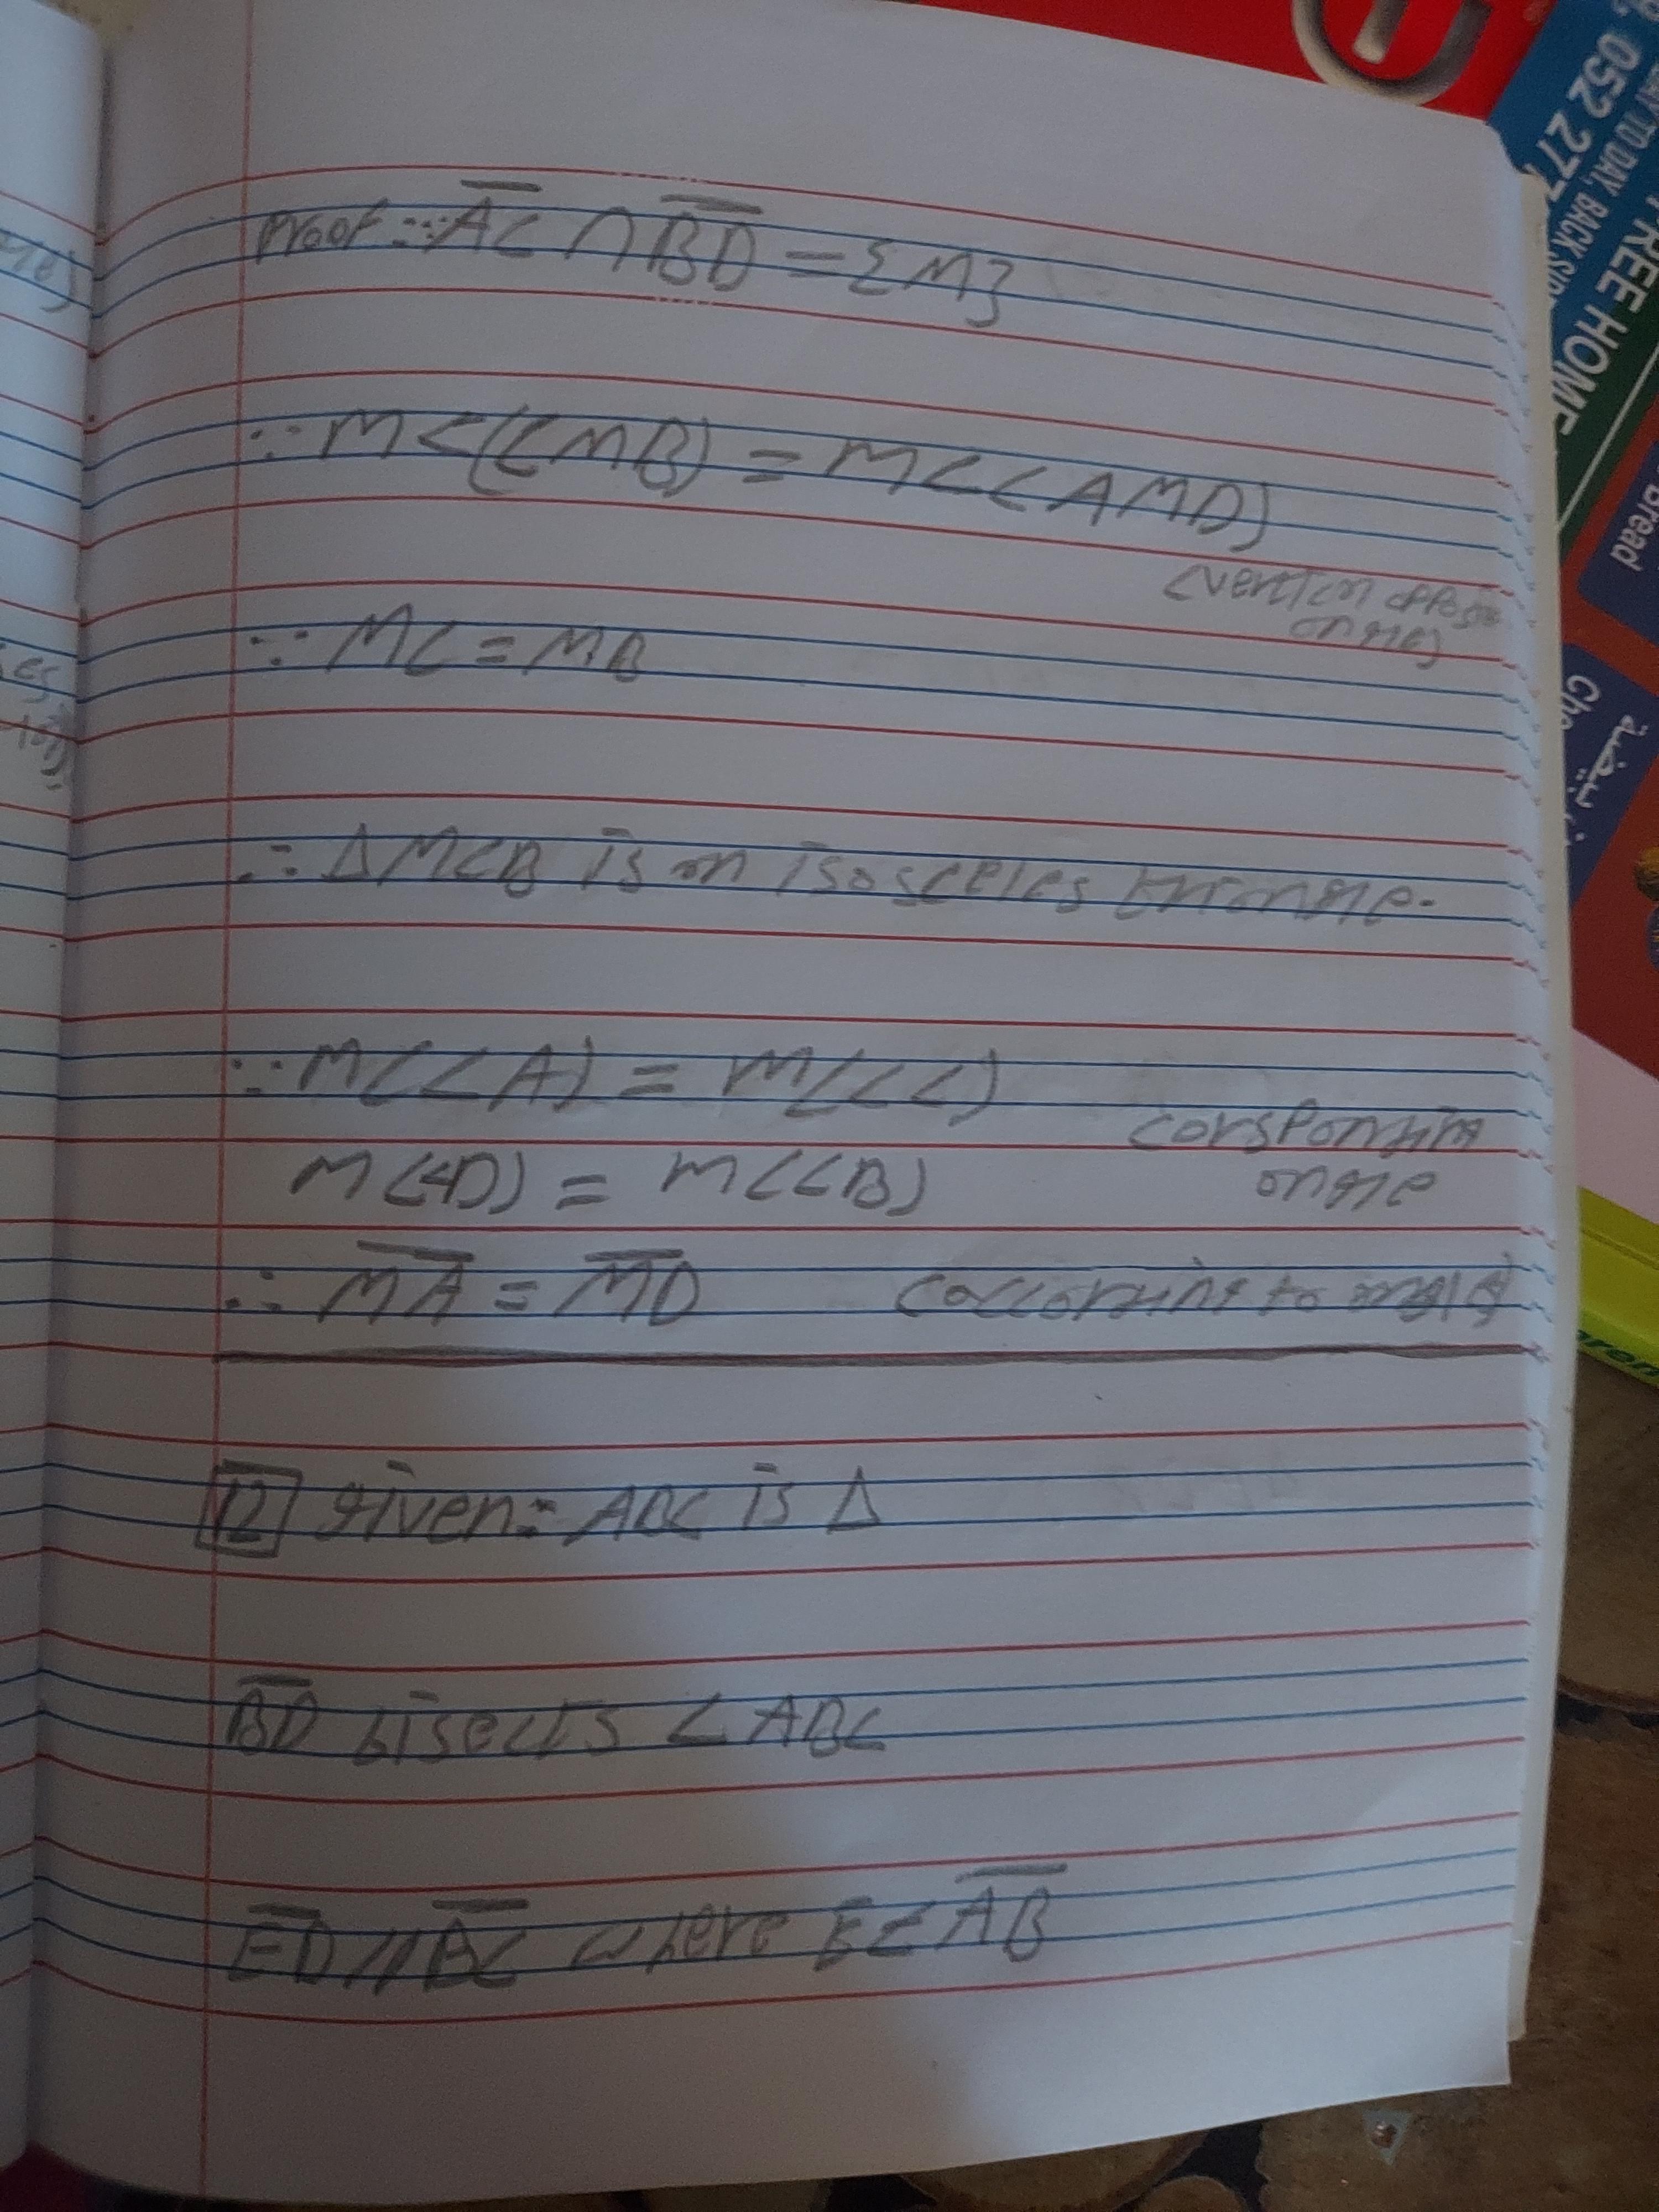 Proof: ∵ AC ∩ BD = {M}
∵ M<(<MB) = M(<AMD)
(vertical opposite
angles)
∵ MC = MB
∴ Δ MCB is an isosceles triangle.
∵ M(<A) = M(<C)
corsponding
angle
M(<D) = M(<B)
∴ MA = MD (according to angle
12 given: ABC is Δ
BD bisects < ABC
ED // BC where E ∈ AB
052 277
TO DAY, BACK
FREE HOME
Bread